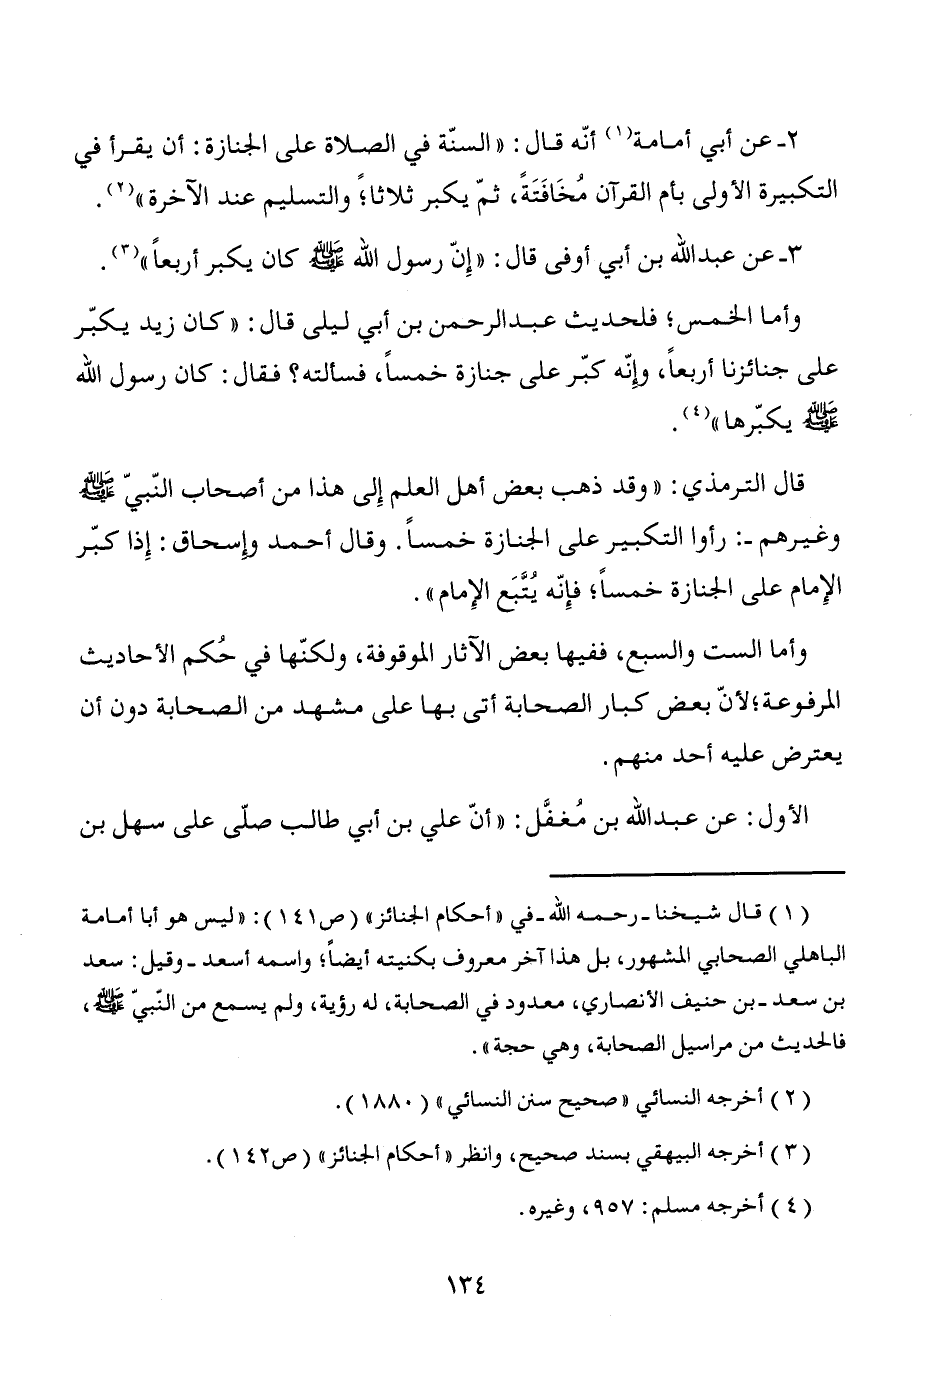 ٢ـ عن أبي أمامة(١) أنّه قال: «السنّة في الصلاة على الجنازة: أن يقرأ في
التكبيرة الأولى بأم القرآن مُخَافَتَةً، ثمّ يكبر ثلاثاً؛ والتسليم عند الآخرة»(٢).
٣ـ عن عبدالله بن أبي أوفى قال: «إنّ رسول الله ﷺ كان يكبر أربعاً»(٣).
وأما الخمس؛ فلحديث عبدالرحمن بن أبي ليلى قال: «كان زيد يكبّر
على جنائزنا أربعاً، وإنّه كبّر على جنازة خمساً، فسألته؟ فقال: كان رسول الله
ﷺ يكبّرها»(٤).
قال الترمذي: «وقد ذهب بعض أهل العلم إلى هذا من أصحاب النّبيّ ﷺ
وغيرهم ـ: رأوا التكبير على الجنازة خمساً. وقال أحمد وإسحاق: إذا كبّر
الإمام على الجنازة خمساً؛ فإنّه يُتَّبَع الإمام».
وأما الست والسبع، ففيها بعض الآثار الموقوفة، ولكنّها في حُكم الأحاديث
المرفوعة؛لأنّ بعض كبار الصحابة أتى بها على مشهد من الصحابة دون أن
يعترض عليه أحد منهم.
الأول: عن عبدالله بن مُغفَّل: «أنّ علي بن أبي طالب صلّى على سهل بن
(١) قال شيخنا ـ رحمه الله ـ في «أحكام الجنائز» (ص١٤١): «ليس هو أبا أمامة
الباهلي الصحابي المشهور، بل هذا آخر معروف بكنيته أيضاً؛ واسمه أسعد ـ وقيل: سعد
بن سعد ـ بن حنيف الأنصاري، معدود في الصحابة، له رؤية، ولم يسمع من النّبيّ ﷺ،
فالحديث من مراسيل الصحابة، وهي حجة».
(٢) أخرجه النسائي «صحيح سنن النسائي» (١٨٨٠).
(٣) أخرجه البيهقي بسند صحيح، وانظر «أحكام الجنائز» (ص١٤٢).
(٤) أخرجه مسلم: ٩٥٧، وغيره.
١٣٤